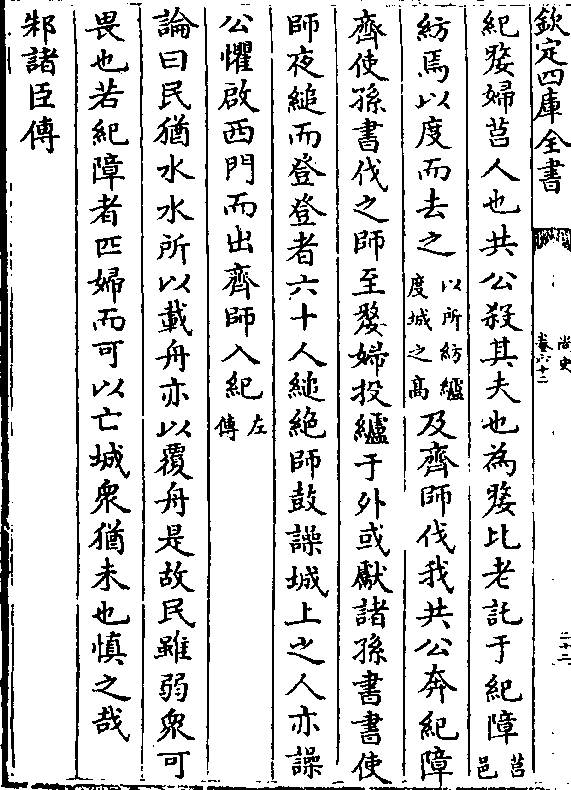 欽定四庫全書
尚史
卷六十二
二十二
紀嫠婦莒人也共公殺其夫也為嫠比老託于紀障莒邑
紡焉以度而去之以所紡纑度城之高及齊師伐我共公奔紀障
齊使孫書伐之師至嫠婦投纑于外或獻諸孫書書使
師夜縋而登登者六十人縋絶師鼓譟城上之人亦譟
公懼啟西門而出齊師入紀左傳
論曰民猶水水所以載舟亦以覆舟是故民雖弱衆可
畏也若紀障者匹婦而可以亡城衆猶未也慎之哉
邾諸臣傳